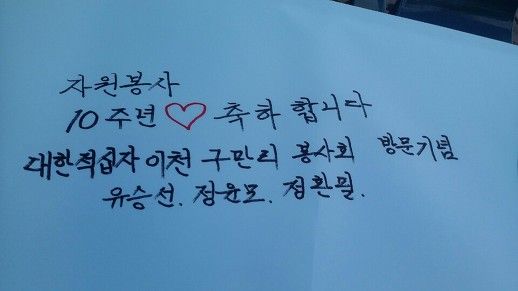 자원봉사
10주년 ♡ 축하 합니다
대한적십자 이천 구만리 봉사회 방문기념
유승선. 정윤모. 정환필.